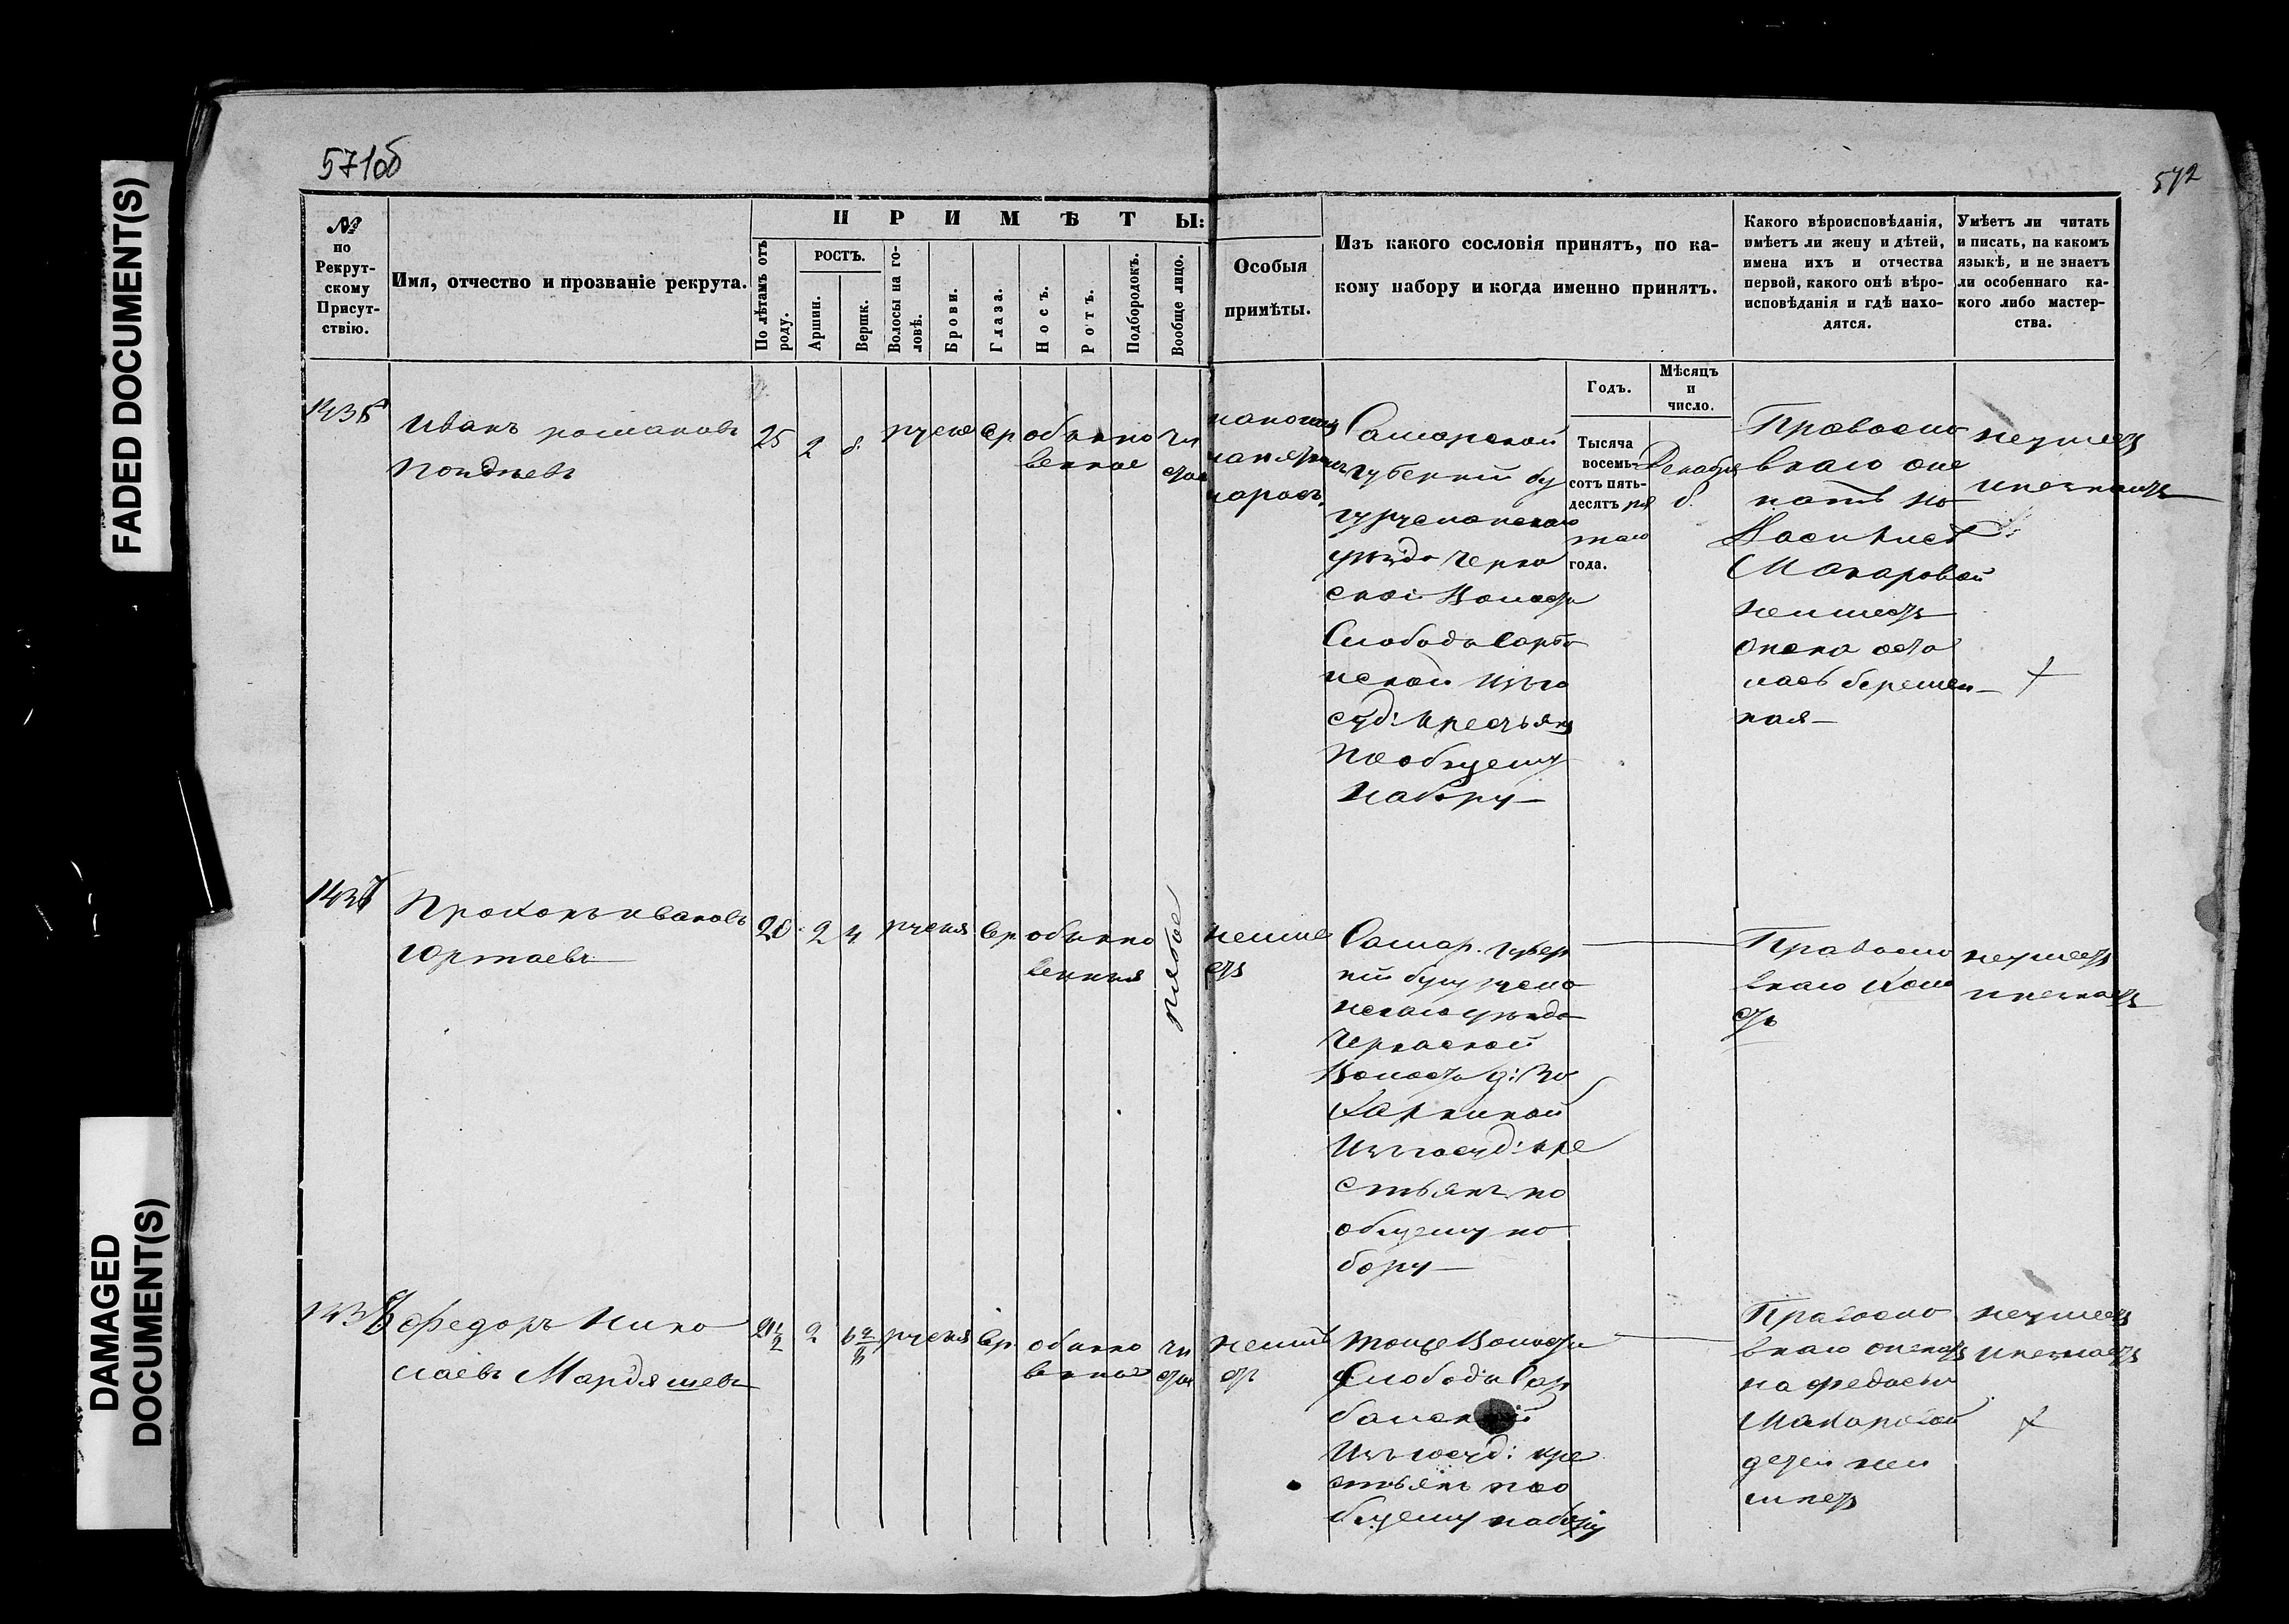 FADED DOCUMENT(S)
DAMAGED
DOCUMENT(S)
571об
572
№
по
Рекрут-
скому
Присут-
ствію.
Имя, отчество и прозваніе рекрута.
ПРИМѢТЫ:
По лѣтамъ отъ
роду.
РОСТЪ.
Аршин.
Вершк.
Волосы на го-
ловѣ.
Брови.
Глаза.
Носъ.
Ротъ.
Подбородокъ.
Вообще лицо.
Особыя
примѣты.
Изъ какого сословія принятъ, по ка-
кому набору и когда именно принятъ.
Какого вѣроисповѣданія,
имѣетъ ли жену и дѣтей,
имена ихъ и отчества
первой, какого онѣ вѣро-
исповѣданія и гдѣ нахо-
дятся.
Умѣетъ ли читать
и писать, на какомъ
языкѣ, и не знаетъ
ли особеннаго ка-
кого либо мастер-
ства.
Годъ.
Мѣсяцъ
и
число.
Иванъ романовъ
25
2
8
русые
сер
обыкно
венное
чи
стое
Самарской
губерніи бу
гурусланскаго
уѣзда Черка
ской Волости
Слободы Сарба
йской Изъ го
суд: Крестьянъ
По общему
Набору
Тысяча
восемь-
сотъ пять-
десятъ
таго
года.
Декабря
Правосла
внаго оне
Макаровой
неимеетъ
онана оста
лась беремен
ная
неумеетъ
инезнаетъ
Прокопъ ивановъ
Юртаевъ
20
2
4
русыя
Сер
обыкно
венныя
рябое
неиме
етъ
Самар. губер
ніи бугурусла
нскаго уѣзда
Черкаской
Волости д:
Изъ госуд: кре
стьянъ по
общему на
бору
Правосла
внаго Холо
стъ
неумеетъ
инезнаетъ
Федоръ Нико
лаевъ Мардяшевъ
2
русыя
Сер
обыкно
венное
чи
стое
неиме
етъ
тойже Волости
Слободы Сар
байской
Изъ госуд: кре
стьянъ поо
бщему набору
Правосла
внаго оженатъ
на федосьи
Макаровой
детей неи
меетъ
неумеетъ
инезнаетъ